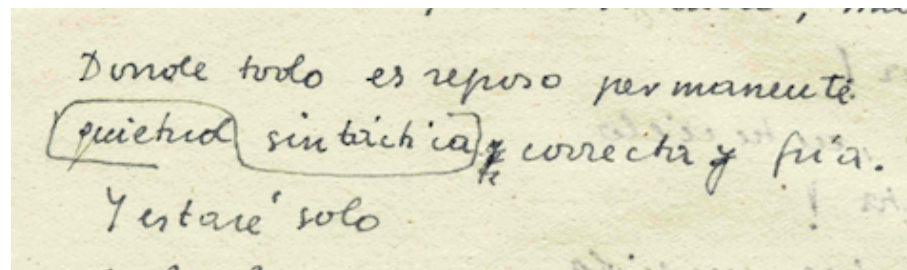 Donde todo es reposo permanente
quietud sintáctica, correcta y fría.
Y estaré solo